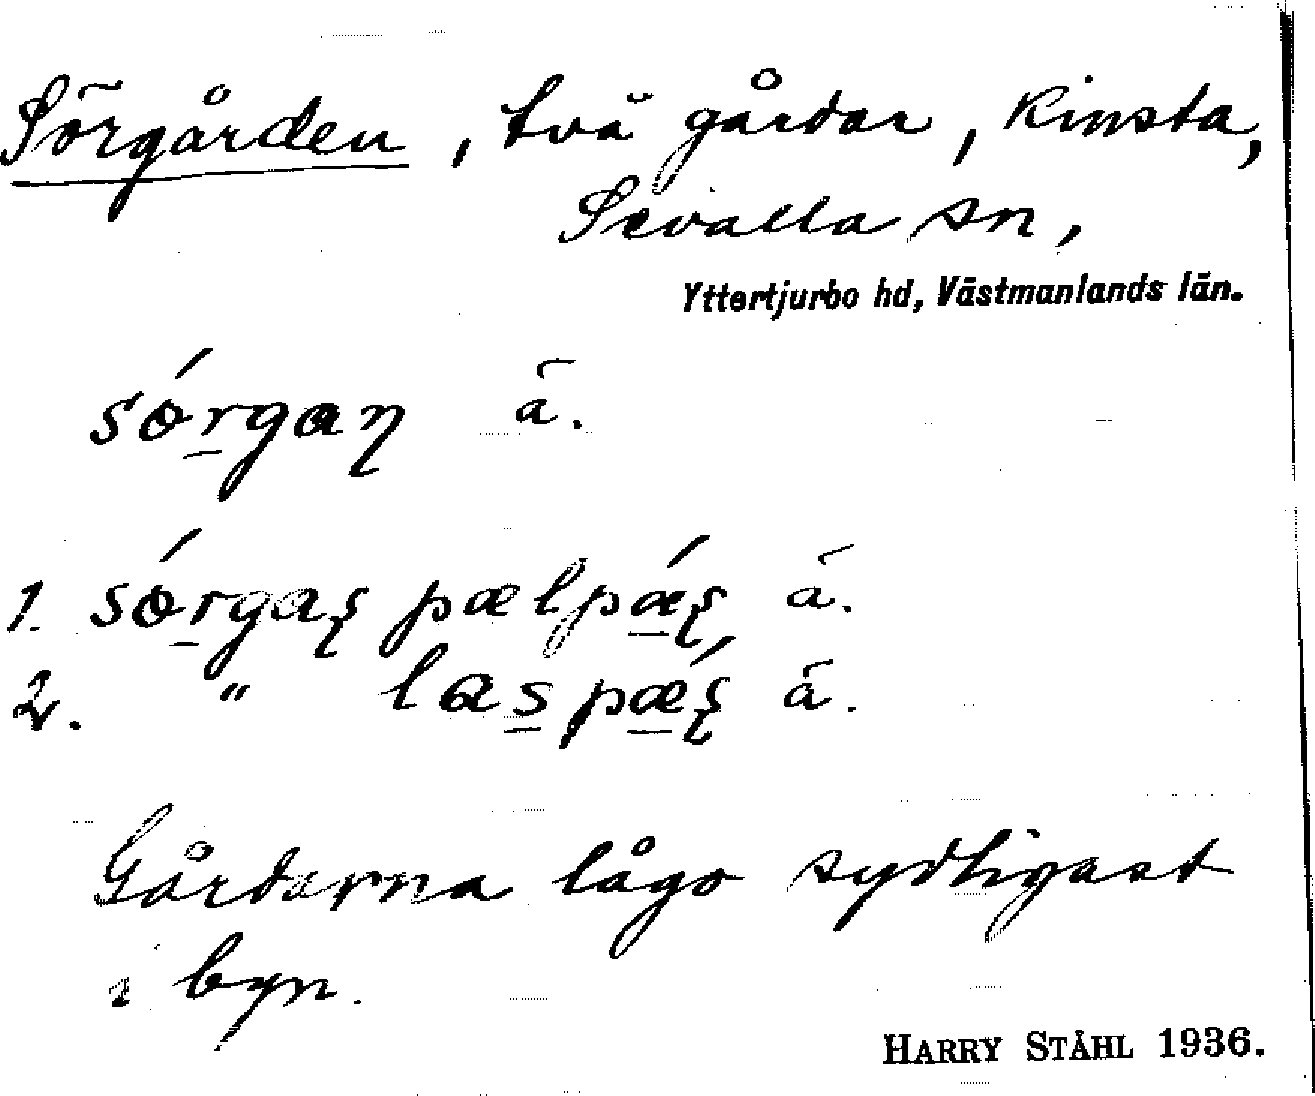 Sörgården, två gårdar, Kinsta,
Sevalla sn,
Yttertjurbo hd, Västmanlands län.
só̱rgaɳ ā.
1. só̱rgaʂ pælpǽ̱ʂ ā.
2. " las̱pǽ̱ʂ ā.
Gårdarna lågo sydligast
i byn.
HARRY STÅHL 1936.